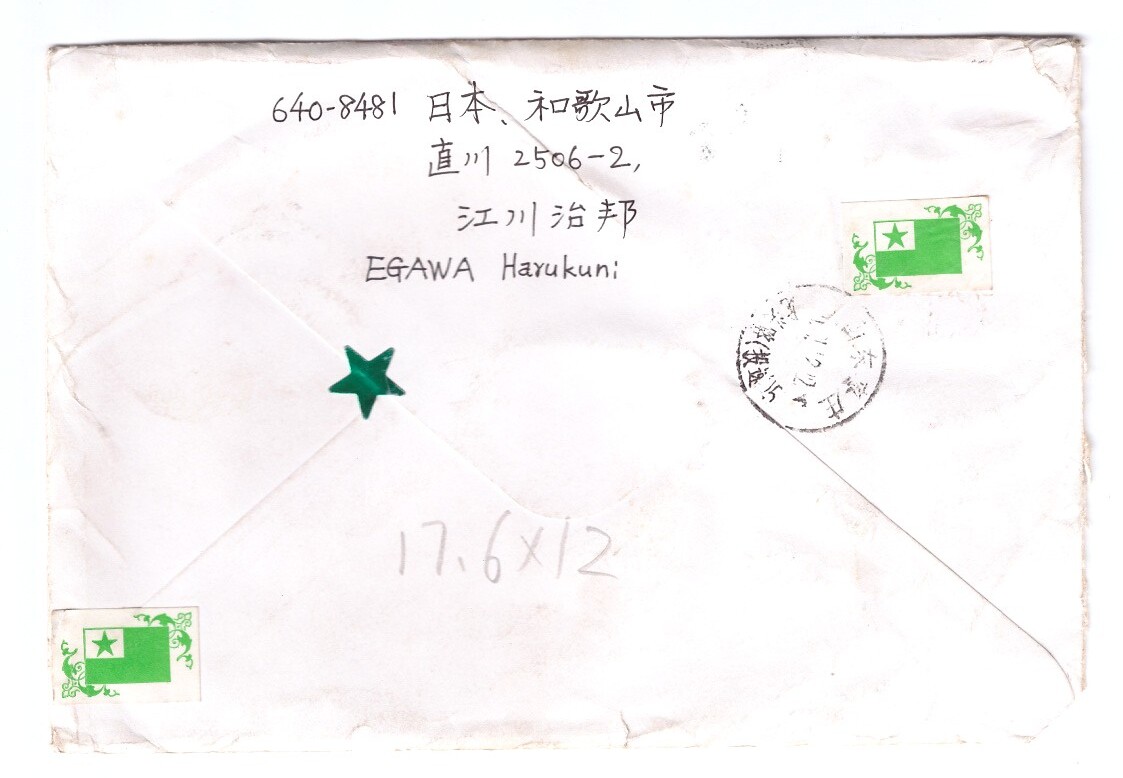 640-8481 日本、和歌山市
直川 2506-2,
江川治邦
EGAWA Harukuni
山东
17.6×12